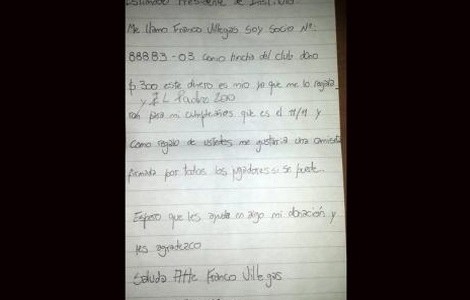 Estimado Presidente de Instituto
Me llamo Franco Villegas Soy Socio Nº:
88883-03 como hincha del club dono
$ 300 este dinero es mio ya que me lo regala_
y EL Padre 200
ron para mi cumpleaños que es el 11/11 y
Como regalo de ustedes me gustaria una camiseta
firmada por todos los jugadores si se puede.
Espero que les ayude en algo mi donación y
les agradezco
Saluda Atte Franco Villegas